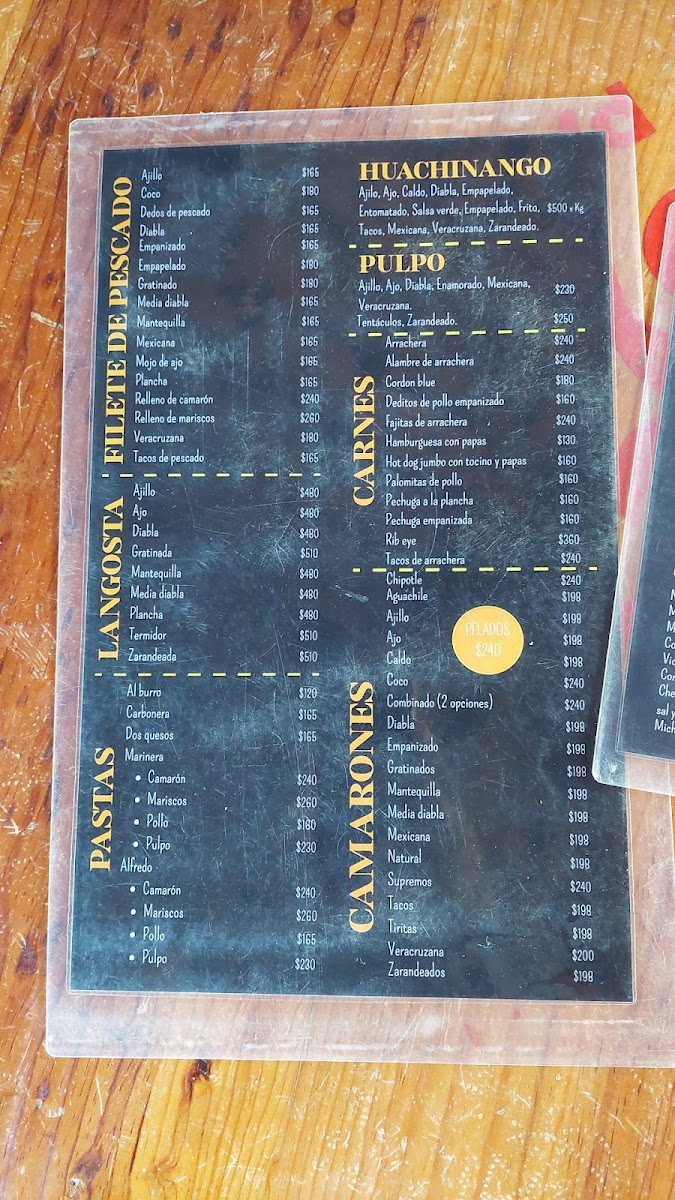 FILETE DE PESCADO
Ajillo $165
Coco $180
Dedos de pescado $165
Diabla $165
Empanizado $165
Empapelado $180
Gratinado $180
Media diabla $165
Mantequilla $165
Mexicana $165
Mojo de ajo $165
Plancha $165
Relleno de camarón $240
Relleno de mariscos $260
Veracruzana $180
Tacos de pescado $165
LANGOSTA
Ajillo $480
Ajo $480
Diabla $480
Gratinada $510
Mantequilla $480
Media diabla $480
Plancha $480
Termidor $510
Zarandeada $510
PASTAS
Al burro $120
Carbonera $165
Dos quesos $165
Marinera
• Camarón $240
• Mariscos $260
• Pollo $160
• Pulpo $230
Alfredo
• Camarón $240
• Mariscos $260
• Pollo $165
• Pulpo $230
HUACHINANGO
Ajilo, Ajo, Caldo, Diabla, Empapelado,
Entomatado, Salsa verde, Empapelado, Frito, $500 x Kg
Tacos, Mexicana, Veracruzana, Zarandeado.
PULPO
Ajillo, Ajo, Diabla, Enamorado, Mexicana, $230
Veracruzana.
Tentáculos, Zarandeado. $250
CARNES
Arrachera $240
Alambre de arrachera $240
Cordon blue $180
Deditos de pollo empanizado $160
Fajitas de arrachera $240
Hamburguesa con papas $130
Hot dog jumbo con tocino y papas $160
Palomitas de pollo $160
Pechuga a la plancha $160
Pechuga empanizada $160
Rib eye $360
Tacos de arrachera $240
CAMARONES
Chipotle $240
Aguachile $198
Ajillo $198
Ajo $198
Caldo $198
Coco $240
Combinado (2 opciones) $240
Diabla $198
Empanizado $198
Gratinados $198
Mantequilla $198
Media diabla $198
Mexicana $198
Natural $198
Supremos $240
Tacos $198
Tiritas $198
Veracruzana $200
Zarandeados $198
PELADOS
$240
sal y
Mich